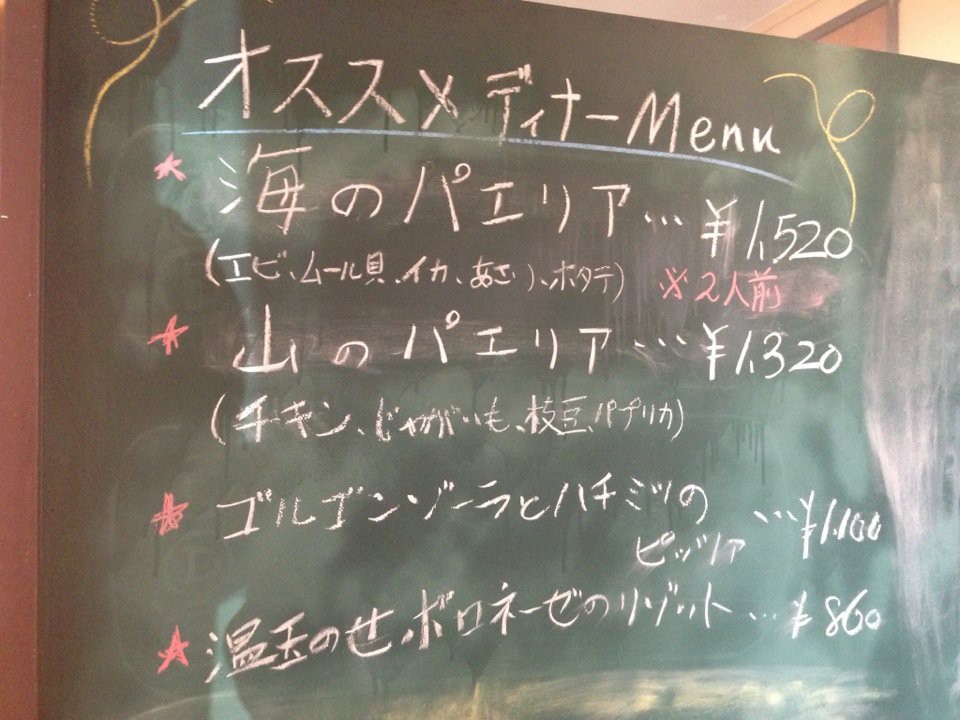 オススメ ディナーMenu
海のパエリア…¥1,520
(エビ、ムール貝、イカ、あさり、ホタテ) ※2人前
山のパエリア…¥1,320
(チキン、じゃがいも、枝豆、パプリカ)
ゴルゴンゾーラとハチミツの
ピッツァ …¥1,100
温玉のせボロネーゼのリゾット…¥860